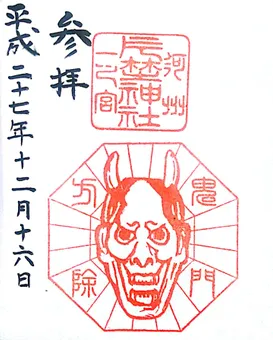 参拝
平成二十七年十二月十六日
河州
片埜神社
一之宮
鬼門
方除